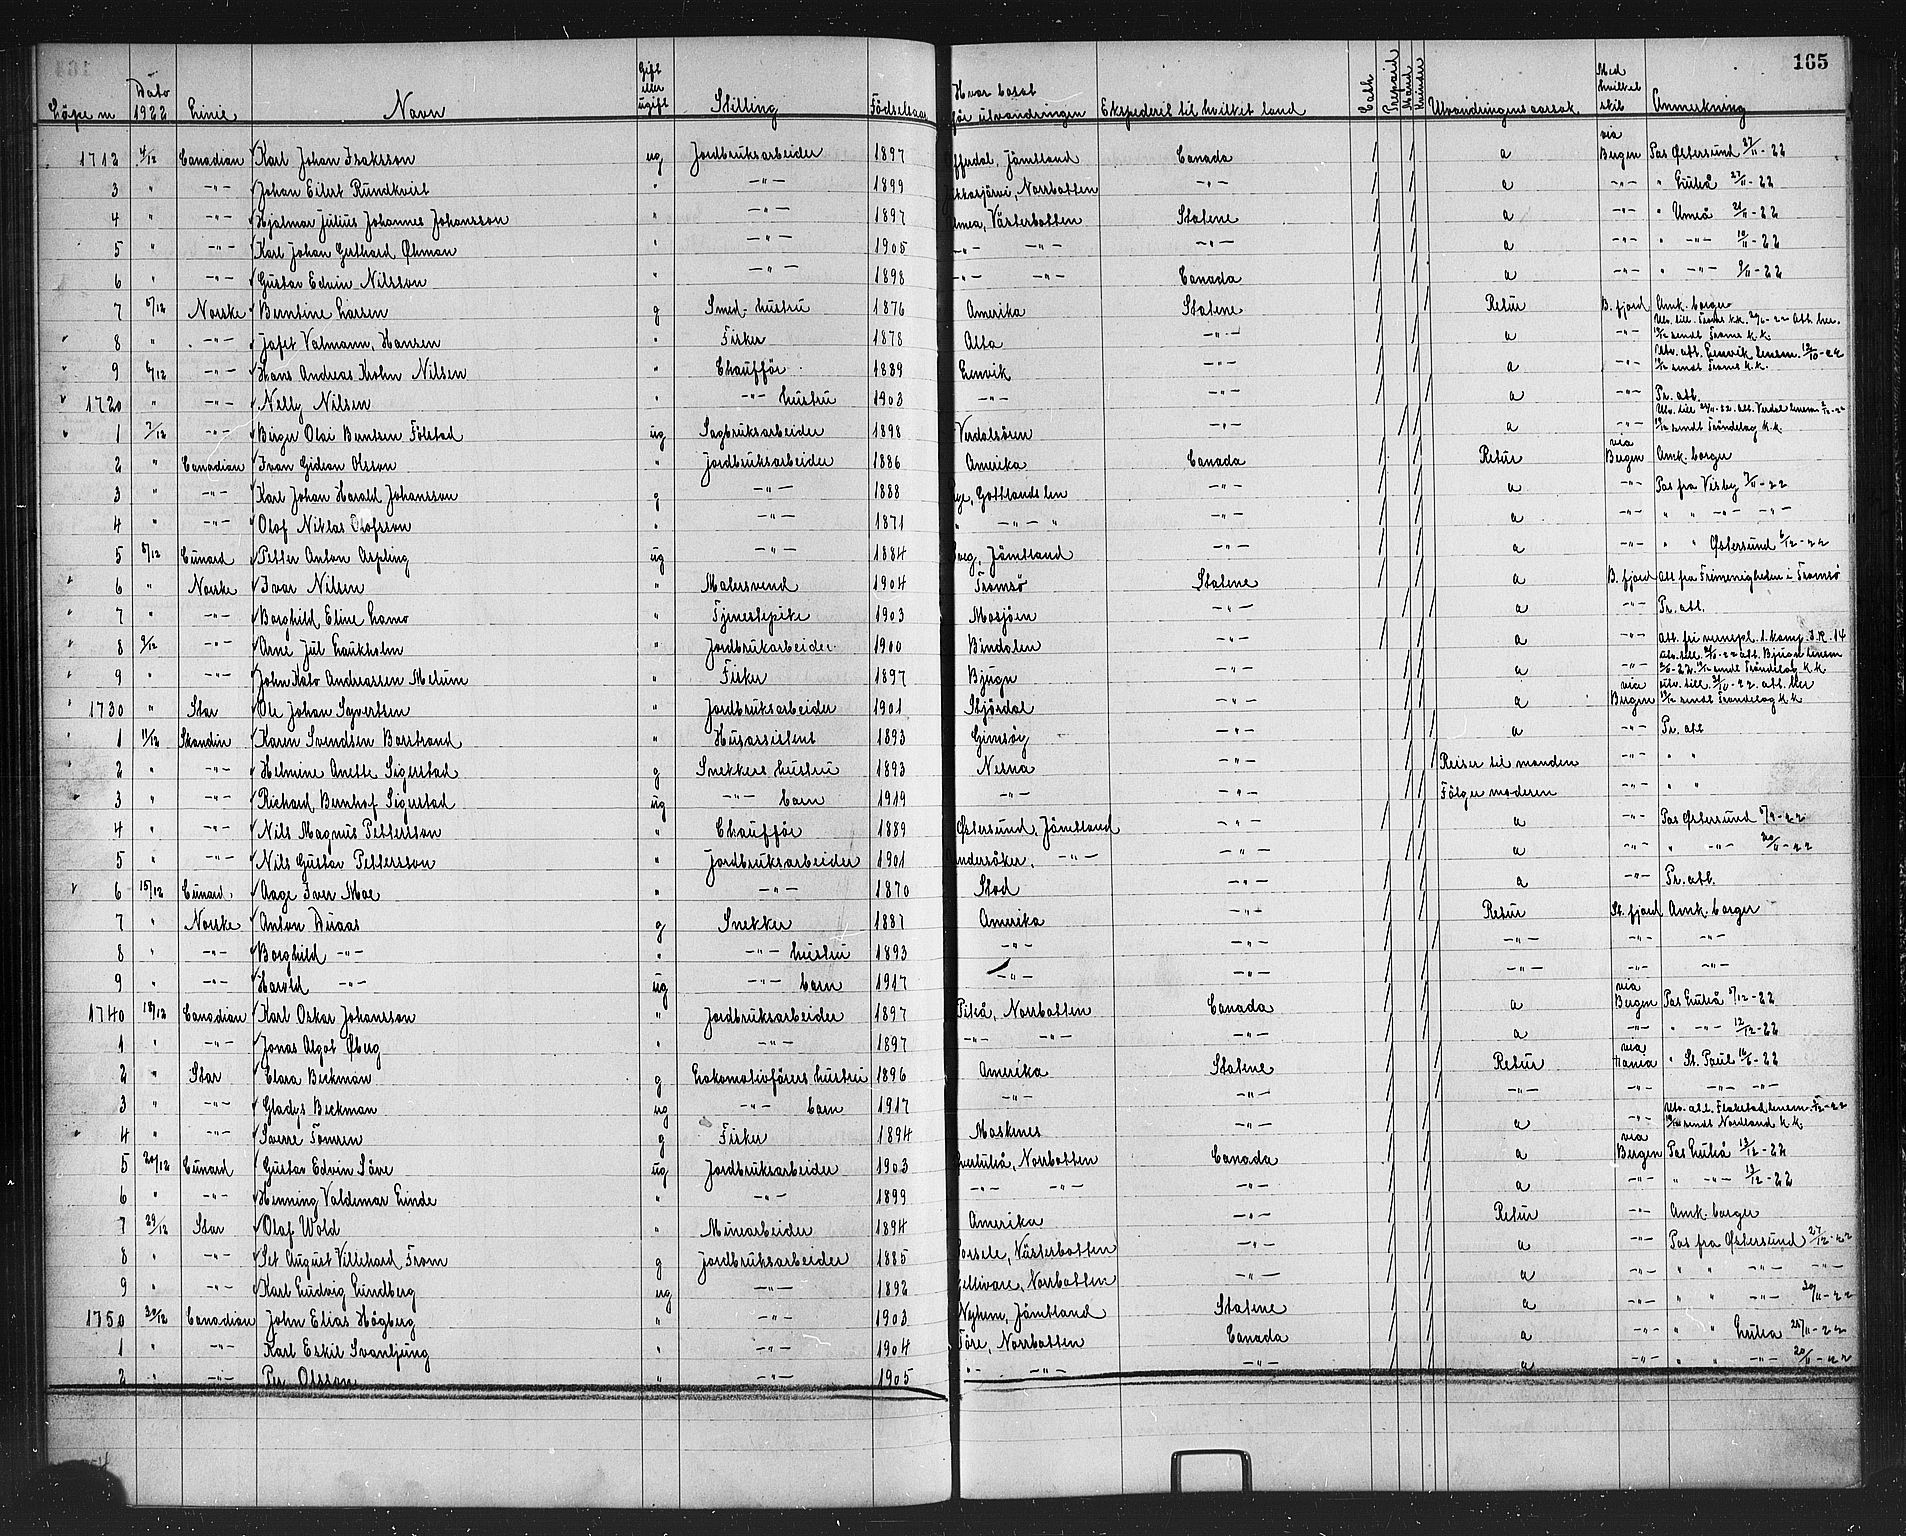 165
Löpe nr Dato 1922 Linie Navn Gift eller ugift Stilling Födselsaar Hvor bosat för utvandringen Ekspederet til hvilket land Cash Prepaid Mænd Kvinder Utvandringens aarsak Med hvilket skib Anmerkning
1712 4/12 Canadian Karl Johan Isaksson ug Jordbruksarbeider 1897 Offerdal, Jämtland Canada a via Bergen Pas Østersund 27/11-22
3 " -"- Johan Eilert Rundkvist " -"- 1899 Norrbotten -"- a -"- " Luleå 27/11-22
4 " -"- Hjalmar Julius Johannes Johansson " -"- 1897 Umea, Västerbotten Statene a -"- " Umeå 21/11-22
5 " -"- Karl Johan Gerhard Øhman " -"- 1905 -"- -"- -"- a -"- " -"- 10/11-22
6 " -"- Gustav Edvin Nilsson " -"- 1898 -"- -"- Canada a -"- " -"- 9/11-22
7 5/12 Norske Berntine Larsen g Smed-hustru 1876 Amerika Statene Retur B. fjord Amk. borger
8 " -"- Jafet Valmann, Hansen " Fisker 1878 Alta -"- a -"- Utv. till. Troms K.K. 29/6-22 Att. her. 13/12 sendt Troms K.K.
9 6/12 -"- Hans Andreas Krohn Nilsen " Chaufför 1889 Lenvik -"- a -"- Utv. att. Lenvik lensm. 12/10-22 13/12 sendt Troms K.K.
1720 " -"- Nelly Nilsen " -"- hustru 1903 -"- -"- a Pr. att.
1 7/12 -"- Birger Olai Berntsen Fölstad ug Sagbruksarbeider 1898 Verdalsören -"- a -"- Utv. till 24/11-22. att. Verdal lensm. 2/12-22 13/12 sendt Tröndelag K.K.
2 " Canadian Ivan Gideon Olsson " Jordbruksarbeider 1886 Amerika Canada Retur via Bergen Amk. borger
3 " -"- Karl Johan Harald Johansson g -"- 1888 Gottlands len -"- a -"- Pas fra Visby 7/11-22
4 " -"- Olof Niklas Olofsson " -"- 1871 " -"- " -"- a -"- " " -"- -"-
5 8/12 Cunard Petter Anton Aspling ug -"- 1884 Sveg, Jämtland -"- a -"- " " Østersund 2/12-22
6 " Norske Ivar Nilsen " Malersvend 1904 Tromsö Statene a B. fjord Att fra Frimenigheden i Tromsö
7 " -"- Borghild Eline Lamo " Tjenestepike 1903 Mosjöen -"- a -"- Pr. att.
8 9/12 -"- Arne Jul Laukholm " Jordbrukarbeider 1900 Bindalen -"- a -"- Att. fri vernepl. 1. komp. I.R. 14
9 " -"- John Kato Andreassen Melum " Fisker 1897 Bjugn -"- a -"- Utv. till. 21/11-22 att. Bjugn lensm 13/12 sendt Tröndelag K.K
1730 " Star Ole Johan Syvertsen " Jordbruksarbeider 1901 Stjördal -"- a via Bergen utv. till. 21/11-22. att. her 13/12 sendt Tröndelag K.K
1 11/12 Skandin Karen Svendsen Barstrand " Husassistent 1893 Gimsöy -"- a -"- Pr. att
2 " -"- Helmine Anette Sigerstad g Snekkers hustru 1893 Nesna -"- Reiser til manden -"- " "
3 " -"- Richard Bernhof Sigerstad ug -"- barn 1919 -"- -"- Fölger moderen -"- " "
4 " -"- Nils Magnus Pettersson " Chaufför 1889 Østersund, Jämtland -"- a -"- Pas Østersund 8/9-22
5 " -"- Nils Gustav Pettersson " Jordbruksarbeider 1901 Undersåker, -"- -"- a -"- " -"- 20/11-22
6 15/12 Cunard Aage Iver Moe " -"- 1870 Stod -"- a -"- Pr. att.
7 " Norske Anton Duaas g Snekker 1887 Amerika -"- Retur St. fjord Amk. borger
8 " -"- Borghild -"- " -"- hustru 1893 -"- -"- -"- -"- -"-
9 " -"- Harold -"- ug -"- barn 1917 -"- -"- -"- -"- -"-
1740 18/12 Canadian Karl Oskar Johansson " Jordbruksarbeider 1897 Piteå, Norrbotten Canada a via Bergen Pas Luleå 5/12-22
1 " -"- Jonas Algot Øberg " -"- 1897 -"- -"- -"- a -"- " -"- 12/12-22
2 " Star Clara Beckman g Lokomotivförers hustru 1896 Amerika Statene Retur via " St. Paul 16/6-22
3 " -"- Gladys Beckman ug -"- barn 1917 -"- -"- -"- -"- -"-
4 " -"- Sverre Tömren g Fisker 1894 Moskenes -"- a -"- Utv. att. Flakstad lensm. 5/12-22 sendt Nordland K.K.
5 20/12 Cunard Gustav Edvin Säve ug Jordbruksarbeider 1903 Överluleå, Norrbotten Canada a via Bergen Pas Luleå 13/12-22
6 " -"- Henning Valdemar Linde " -"- 1899 -"- -"- -"- a -"- " -"- 13/12-22
7 29/12 Star Olaf Wold " Minearbeider 1894 Amerika -"- Retur -"- Amk. borger
8 " -"- Set August Villehard From g Jordbruksarbeider 1885 Dorsele, Västerbotten -"- a -"- Pas fra Østersund 27/12-22
9 " -"- Karl Ludvig Lindberg ug -"- 1892 Gellivare, Norrbotten -"- a -"- " " -"- -"-
1750 30/12 Canadian John Elias Högberg " -"- 1903 Nyhem, Jämtland Statene a -"- " " -"- 20/11-22
1 " -"- Karl Eskil Svanljung " -"- 1904 Töre, Norrbotten Canada a -"- " " Lulea 28/11-22
2 " -"- Per Olsson " -"- 1905 " -"- -"- a -"- " " -"- 20/11-22